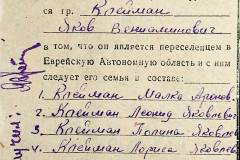 ся гр. Клейман
Яков Вениаминович
в том, что он является переселенцем в
Еврейскую Автономную область и с ним
следует его семья в составе:
1. Клейман Малка Аронов.
2. Клейман Леонид Яковлевич
3. Клейман Полина Яковлев
4. Клейман Лориса Яковлев